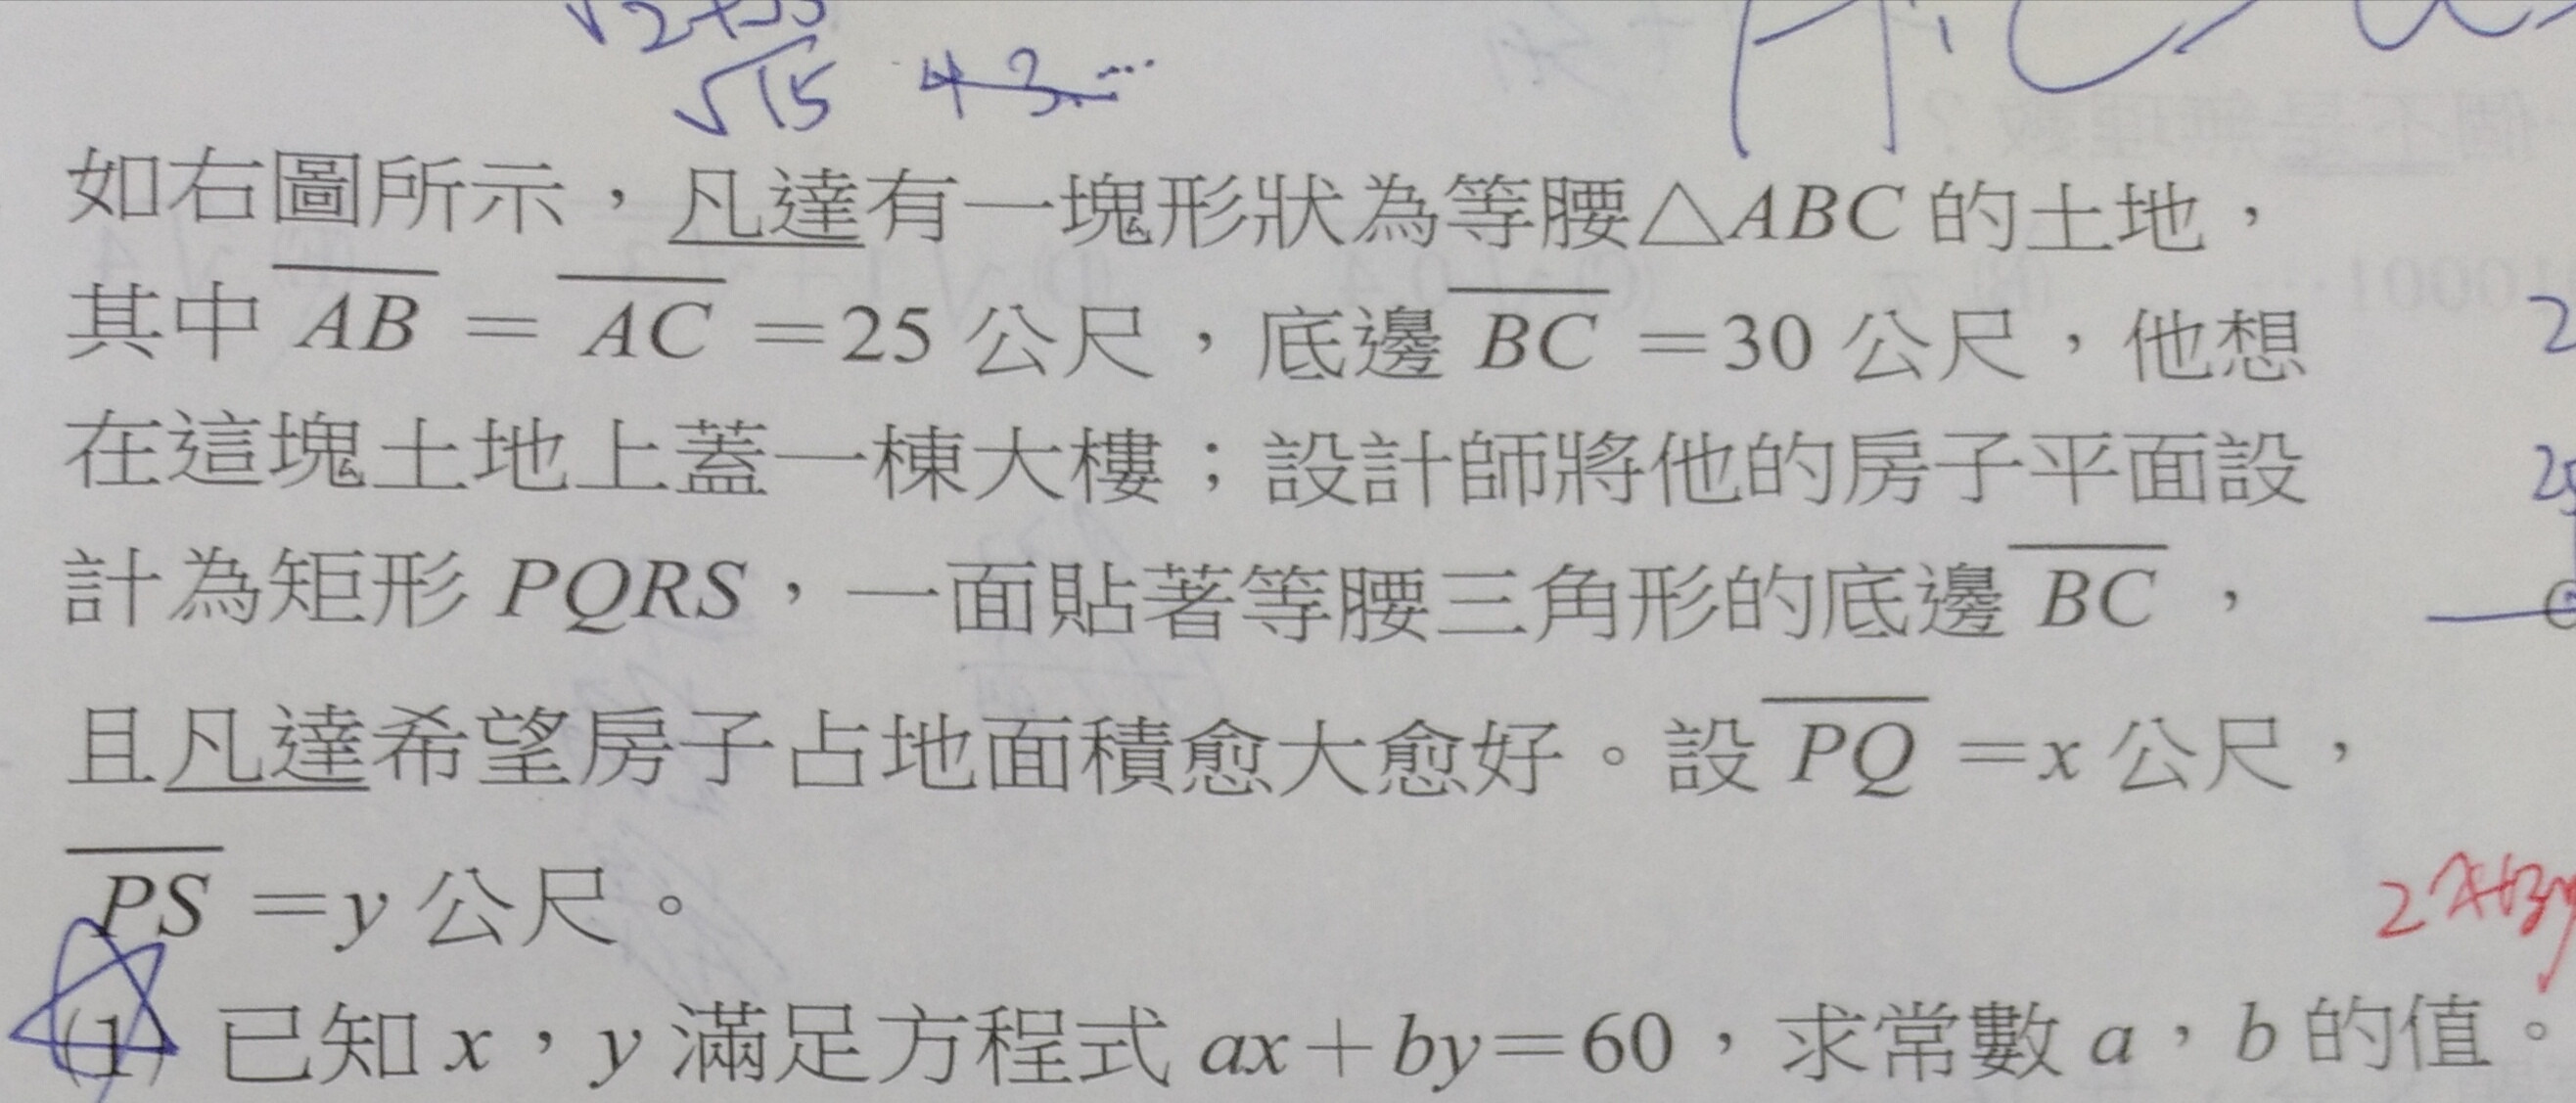 √15 4 3...
如右圖所示，凡達有一塊形狀為等腰△ABC的土地，
其中 AB = AC =25 公尺，底邊 BC =30 公尺，他想
在這塊土地上蓋一棟大樓；設計師將他的房子平面設
計為矩形 PQRS，一面貼著等腰三角形的底邊 BC，
且凡達希望房子占地面積愈大愈好。設 PQ =x 公尺，
PS =y 公尺。
2x+3y
(1) 已知 x，y 滿足方程式 ax+by=60，求常數 a，b 的值。